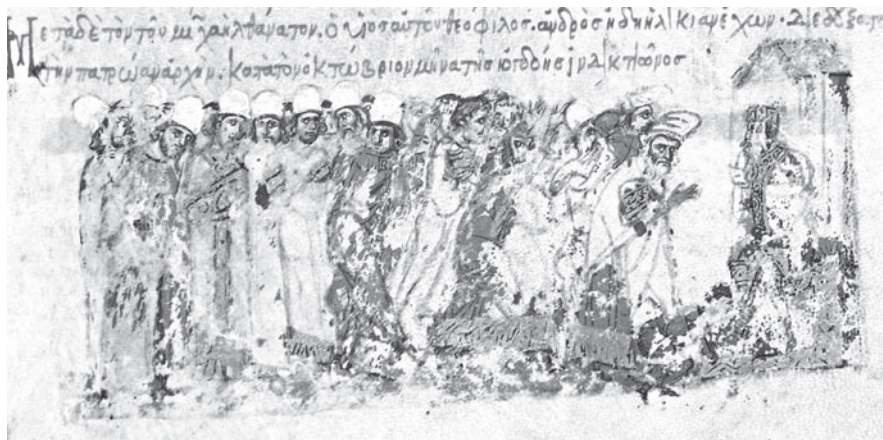 Μετὰ δὲ τὸν τοῦ μιχαὴλ θάνατον. ὁ υἱὸς αὐτοῦ θεόφιλος. ἀνδρὸς ἤδη ἡλικίαν ἔχων. διεδέξατο
τὴν πατρώαν ἀρχήν. κατὰ τὸν ὀκτώβριον μῆνα τῆς ὀγδόης ἰνδικτιῶνος